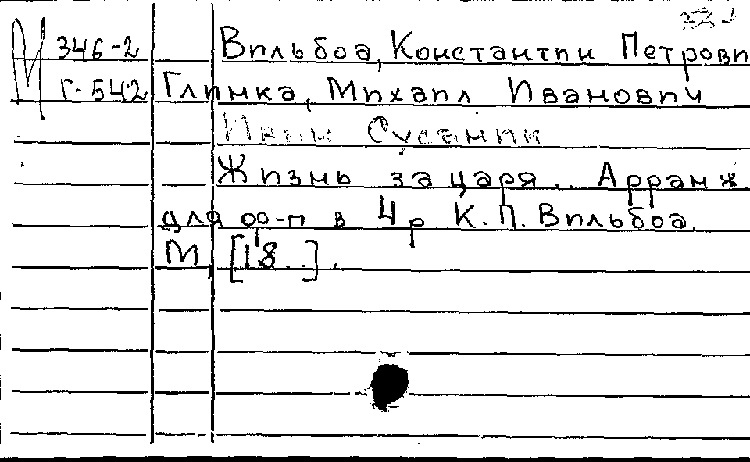 М 346-2 Вильбоа, Константин Петрови
Г-542 Глинка, Михаил Иванович
Иван Сусанин
Жизнь за царя... Арранж
для ф-п в 4 р К.П. Вильбоа.
М, [18..].